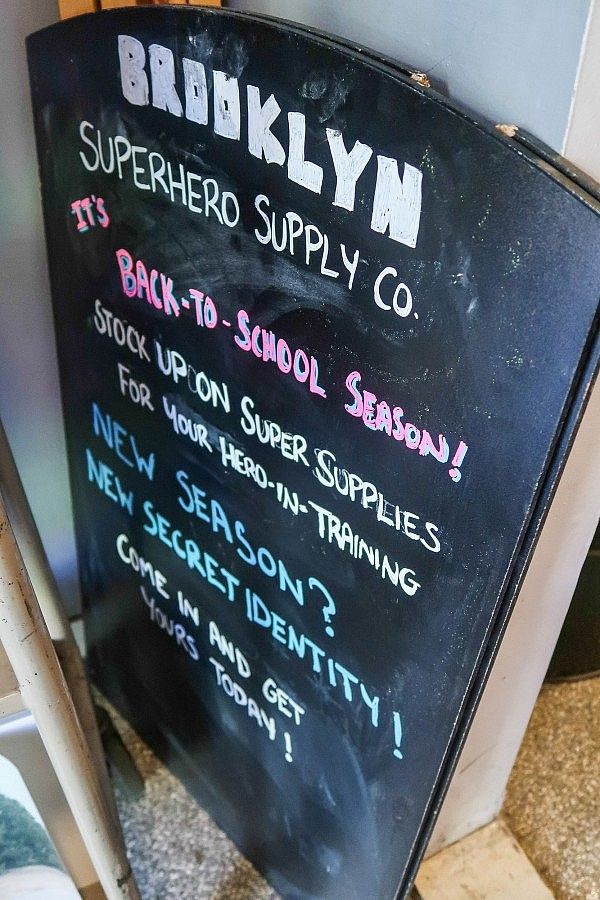 BROOKLYN
SUPERHERO SUPPLY CO.
IT'S
BACK-TO-SCHOOL SEASON!
STOCK UP ON SUPER SUPPLIES
FOR YOUR HERO-IN-TRAINING
NEW SEASON?
NEW SECRET IDENTITY!
COME IN AND GET
YOURS TODAY!